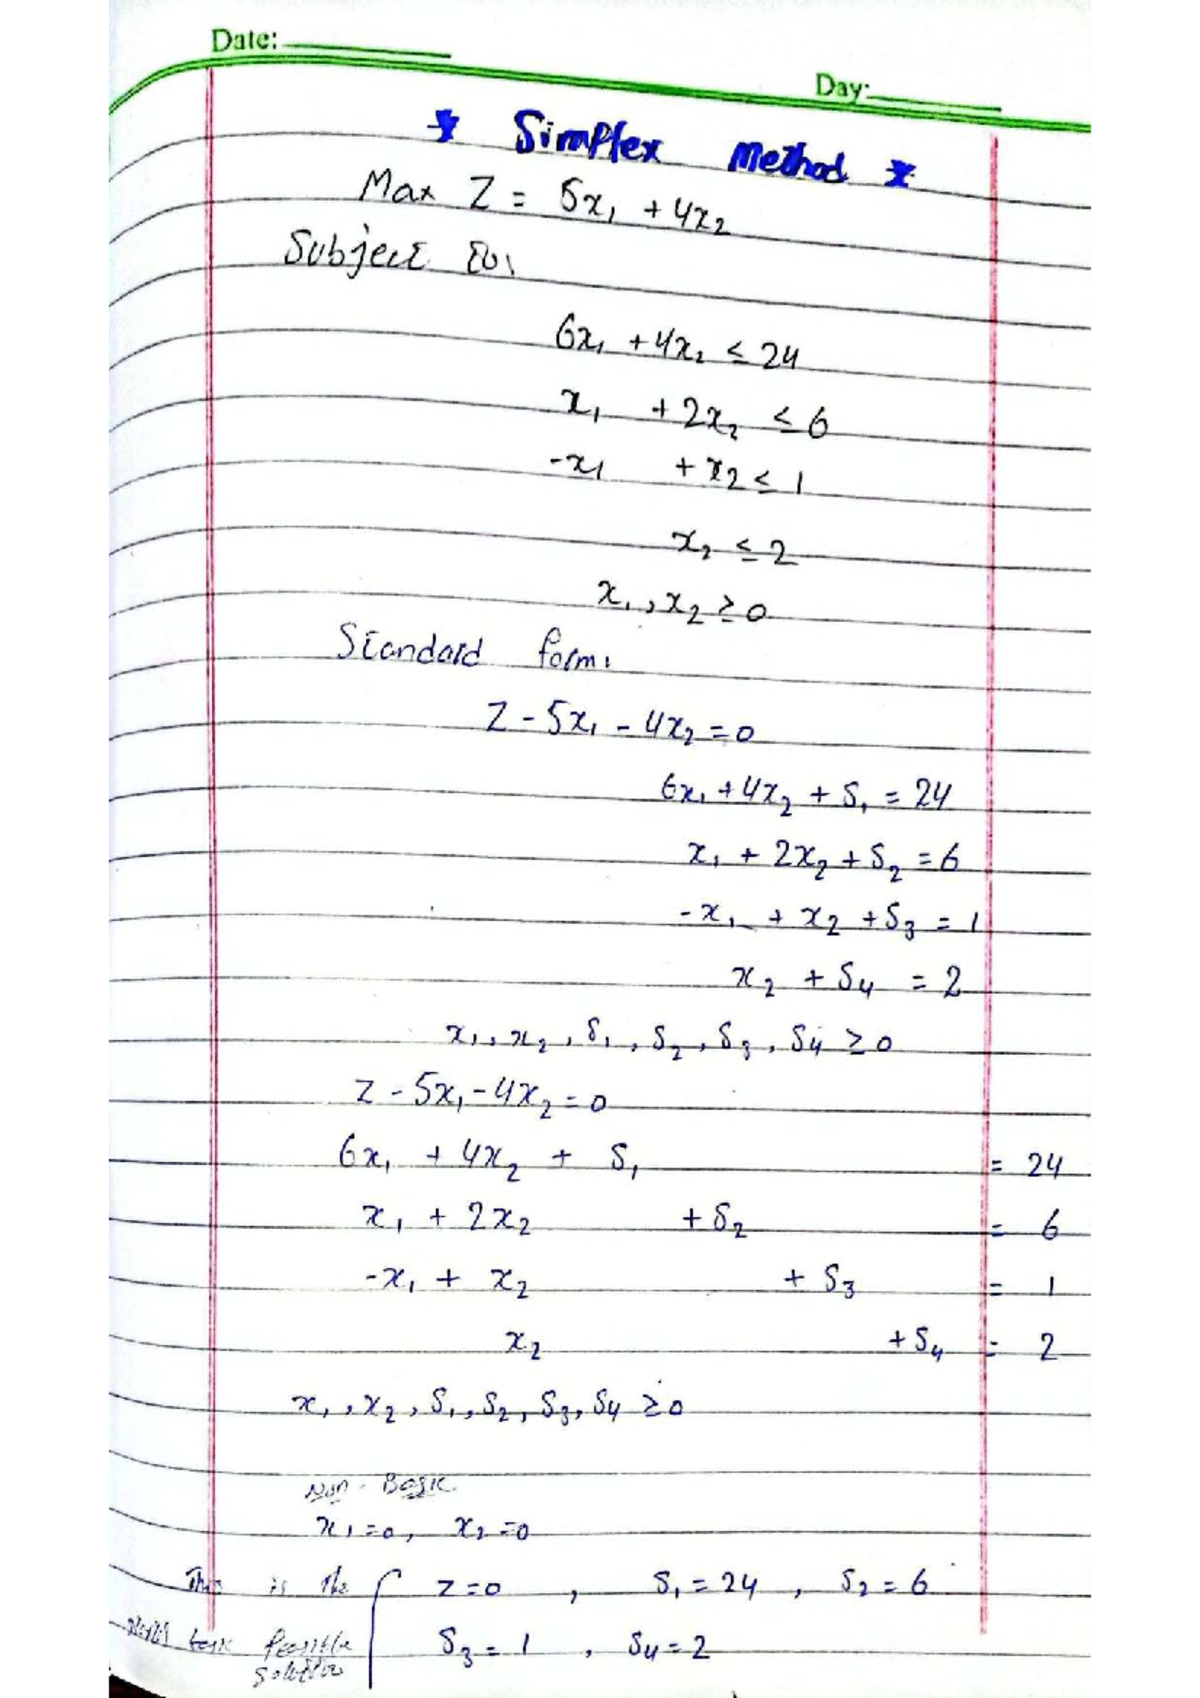 Date:
Day:
* Simplex Method *
Max Z = 5x₁ + 4x₂
Subject to,
6x₁ + 4x₂ ≤ 24
x₁ + 2x₂ ≤ 6
-x₁ + x₂ ≤ 1
x₂ ≤ 2
x₁, x₂ ≥ 0
Standard form:
Z - 5x₁ - 4x₂ = 0
6x₁ + 4x₂ + S₁ = 24
x₁ + 2x₂ + S₂ = 6
-x₁ + x₂ + S₃ = 1
x₂ + S₄ = 2
x₁, x₂, S₁, S₂, S₃, S₄ ≥ 0
Z - 5x₁ - 4x₂ = 0
6x₁ + 4x₂ + S₁ = 24
x₁ + 2x₂ + S₂ = 6
-x₁ + x₂ + S₃ = 1
x₂ + S₄ = 2
x₁, x₂, S₁, S₂, S₃, S₄ ≥ 0
Non-Basic
x₁ = 0, x₂ = 0
This is the Z = 0, S₁ = 24, S₂ = 6
S₃ = 1, S₄ = 2
solution